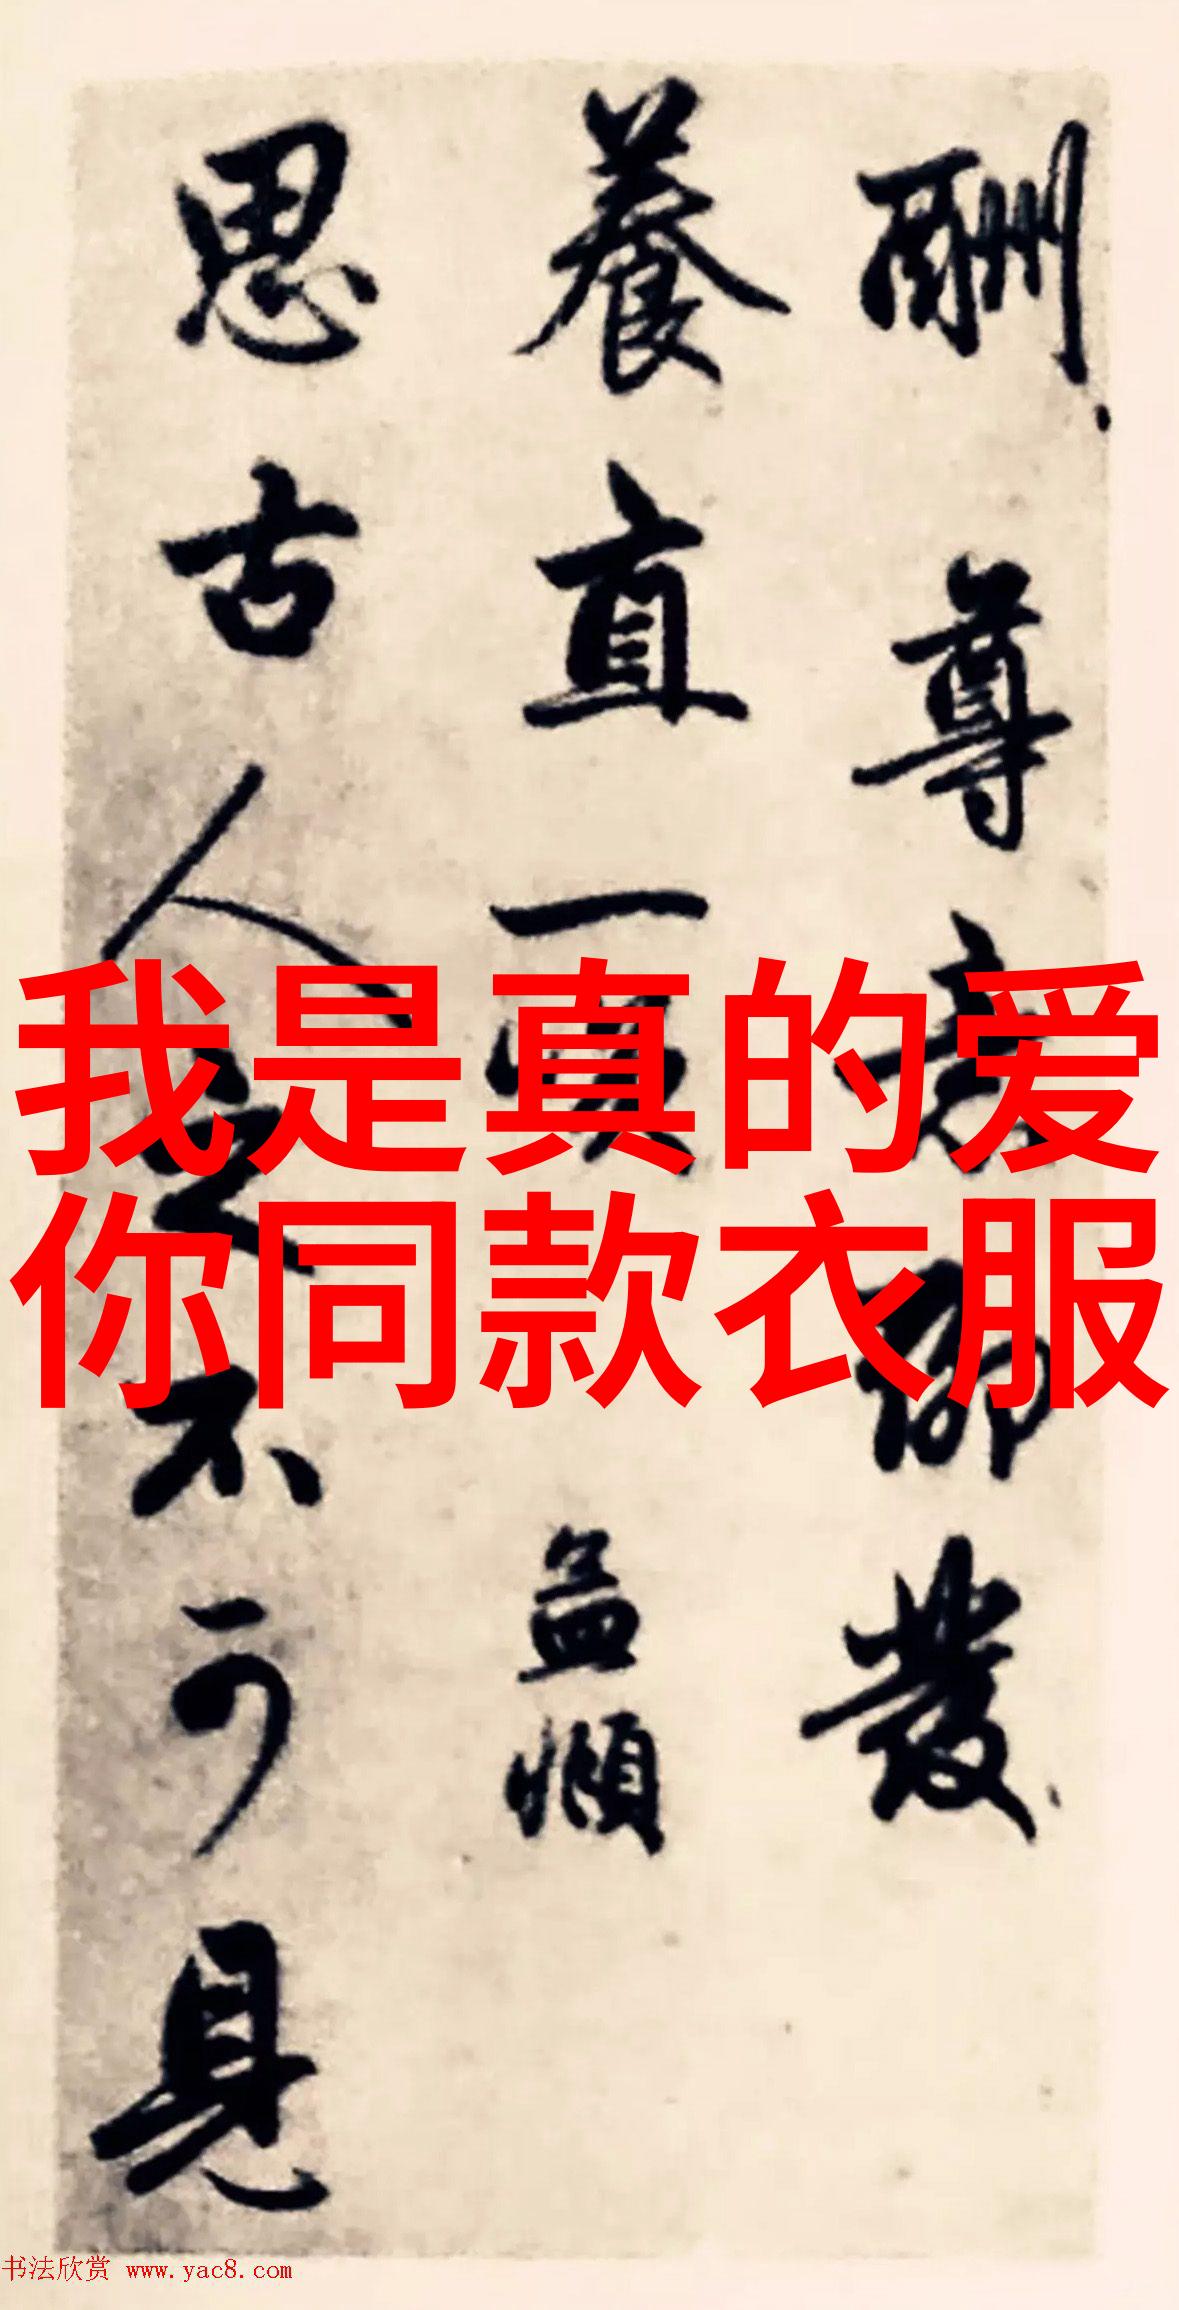 酬尊聊發
養直一孟頫
思古人之不可見
我是真的爱
你同款衣服
书法欣赏 www.yac8.com